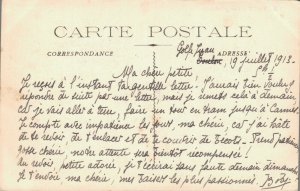 CARTE POSTALE
CORRESPONDANCE
ADRESSE
Golfe Juan
Toulon, 19 juillet 1913
5h
Ma chère petite
Je reçois à l'instant ta gentille lettre! J'aurais bien voulu y
répondre de suite par une lettre, mais je remets cela à demain,
car je vais aller à terre, faire un tour en tram jusqu'à Cannes
Je compte avec impatience les jours, ma chérie, car j'ai hâte
de te revoir, de t'enlacer et de te couvrir de baisers. Tiens patience
grosse chérie notre attente sera bientôt récompensée!
Au revoir petite adorée, je t'écrirai sans faute demain dimanche
Je t'envoie ma chérie mes baisers les plus passionnés.